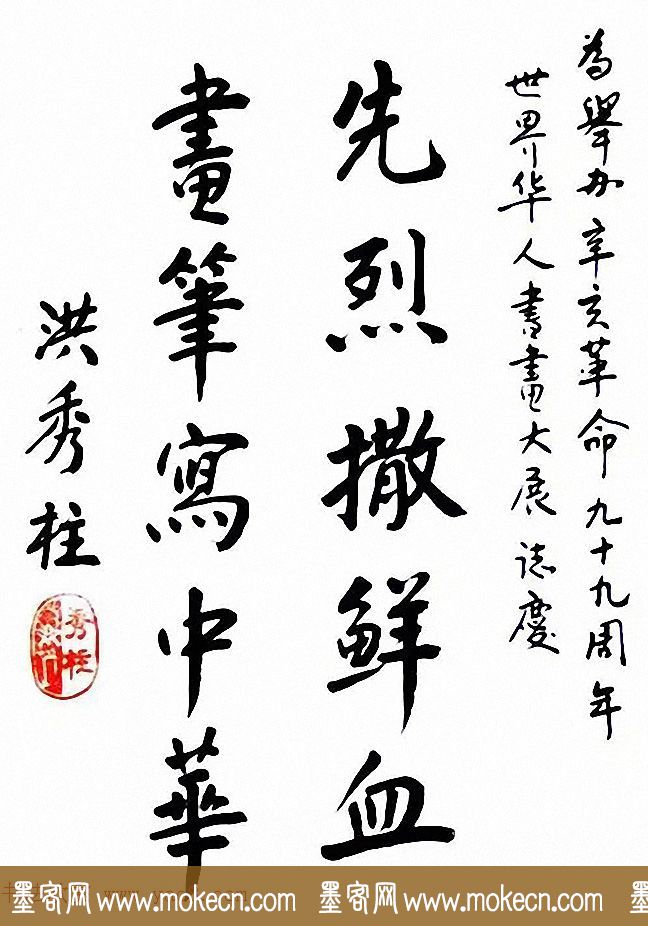 為舉办辛亥革命九十九周年
世界华人書畫大展誌慶
先烈撒鲜血
畫筆寫中華
洪秀柱
秀柱
墨客网 www.mokecn.com 墨客网 www.mokecn.com